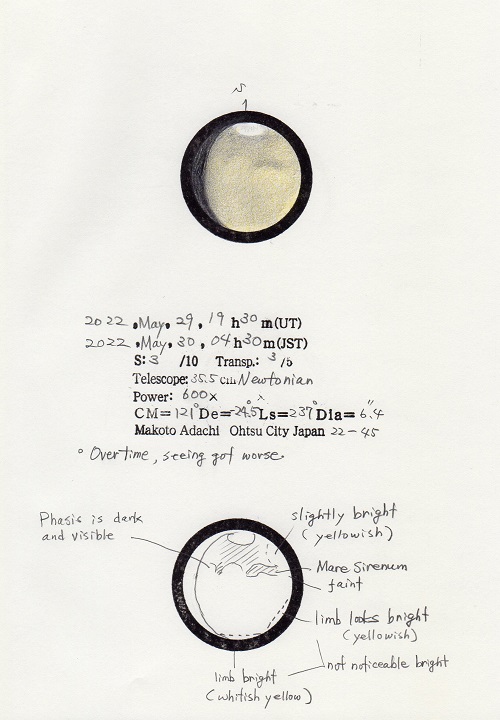 S
2022, May, 29, 19h30m(UT)
2022, May, 30, 04h30m(JST)
S: 3 /10 Transp.: 3 /5
Telescope: 35.5 cm Newtonian
Power: 600x
CM=121° De=-24.5° Ls=237° Dia= 6".4
Makoto Adachi Ohtsu City Japan 22-45
° Overtime, seeing got worse.
Phasis is dark
and visible
slightly bright
(yellowish)
Mare Sirenum
faint
limb looks bright
(yellowish)
not noticeable bright
limb bright
(whitish yellow)